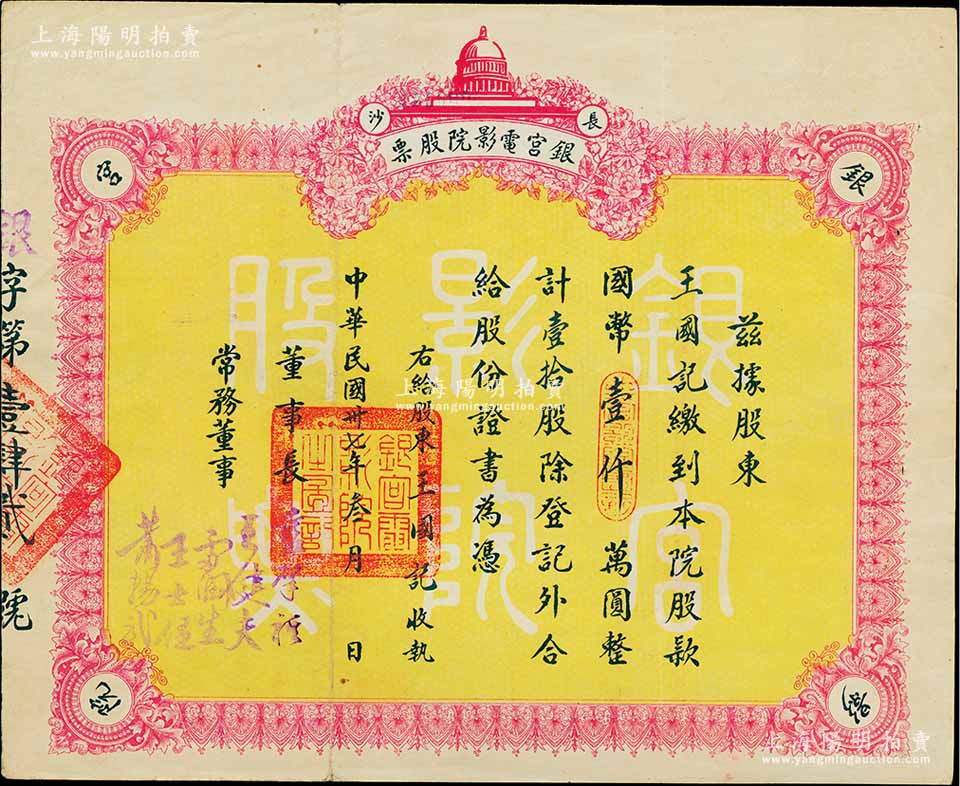 上海陽明拍賣
www.yangmingauction.com
長沙
銀宮電影院股票
銀
茲據股東
王國記繳到本院股款
國幣壹仟萬圓整
計壹拾股除登記外合
給股份證書為憑
右給股東王國記收執
中華民國卅七年叁月 日
董事長
常務董事
王士恆
銀字第壹肆貳號
銀宮電影院股票
上海陽明拍賣
www.yangmingauction.com
上海陽明拍賣
www.yangmingauction.com